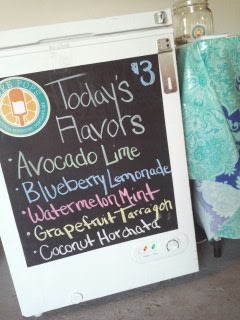 Today's
$3
Flavors
• Avocado Lime
• Blueberry Lemonade
• Watermelon Mint
• Grapefruit Tarragon
• Coconut Horchata